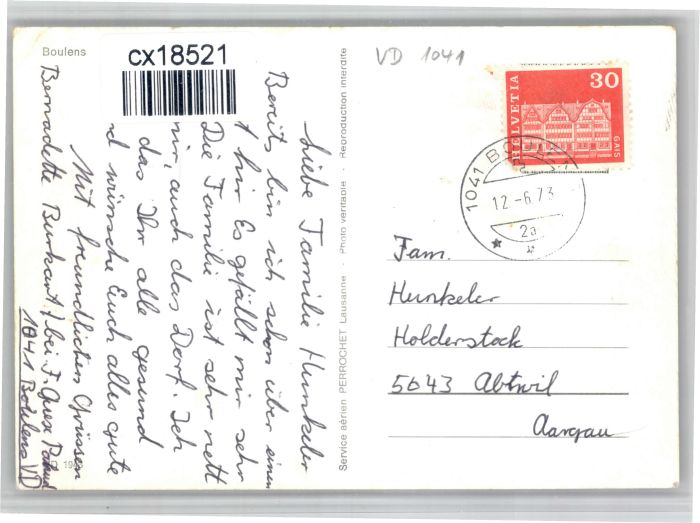 Boulens
cx18521
VD 1041
Liebe Familie Hunkeler
Bereits bin ich schon über einen
hier Es gefällt mir sehr
Die Familie ist sehr nett
mir auch das Dorf. Ich
das Ihr alle gesund
d wünsche Euch alles gute
Mit freundlichen Grüssen
Bernadette Burkart bei F.
1041 Boulens VD
Service aérien PERROCHET Lausanne · Photo véritable · Reproduction interdite
HELVETIA
30
GAIS
1041 BOULENS
12.-6.73
2a
Fam.
Hunkeler
Holderstock
5643 Abtwil
Aargau